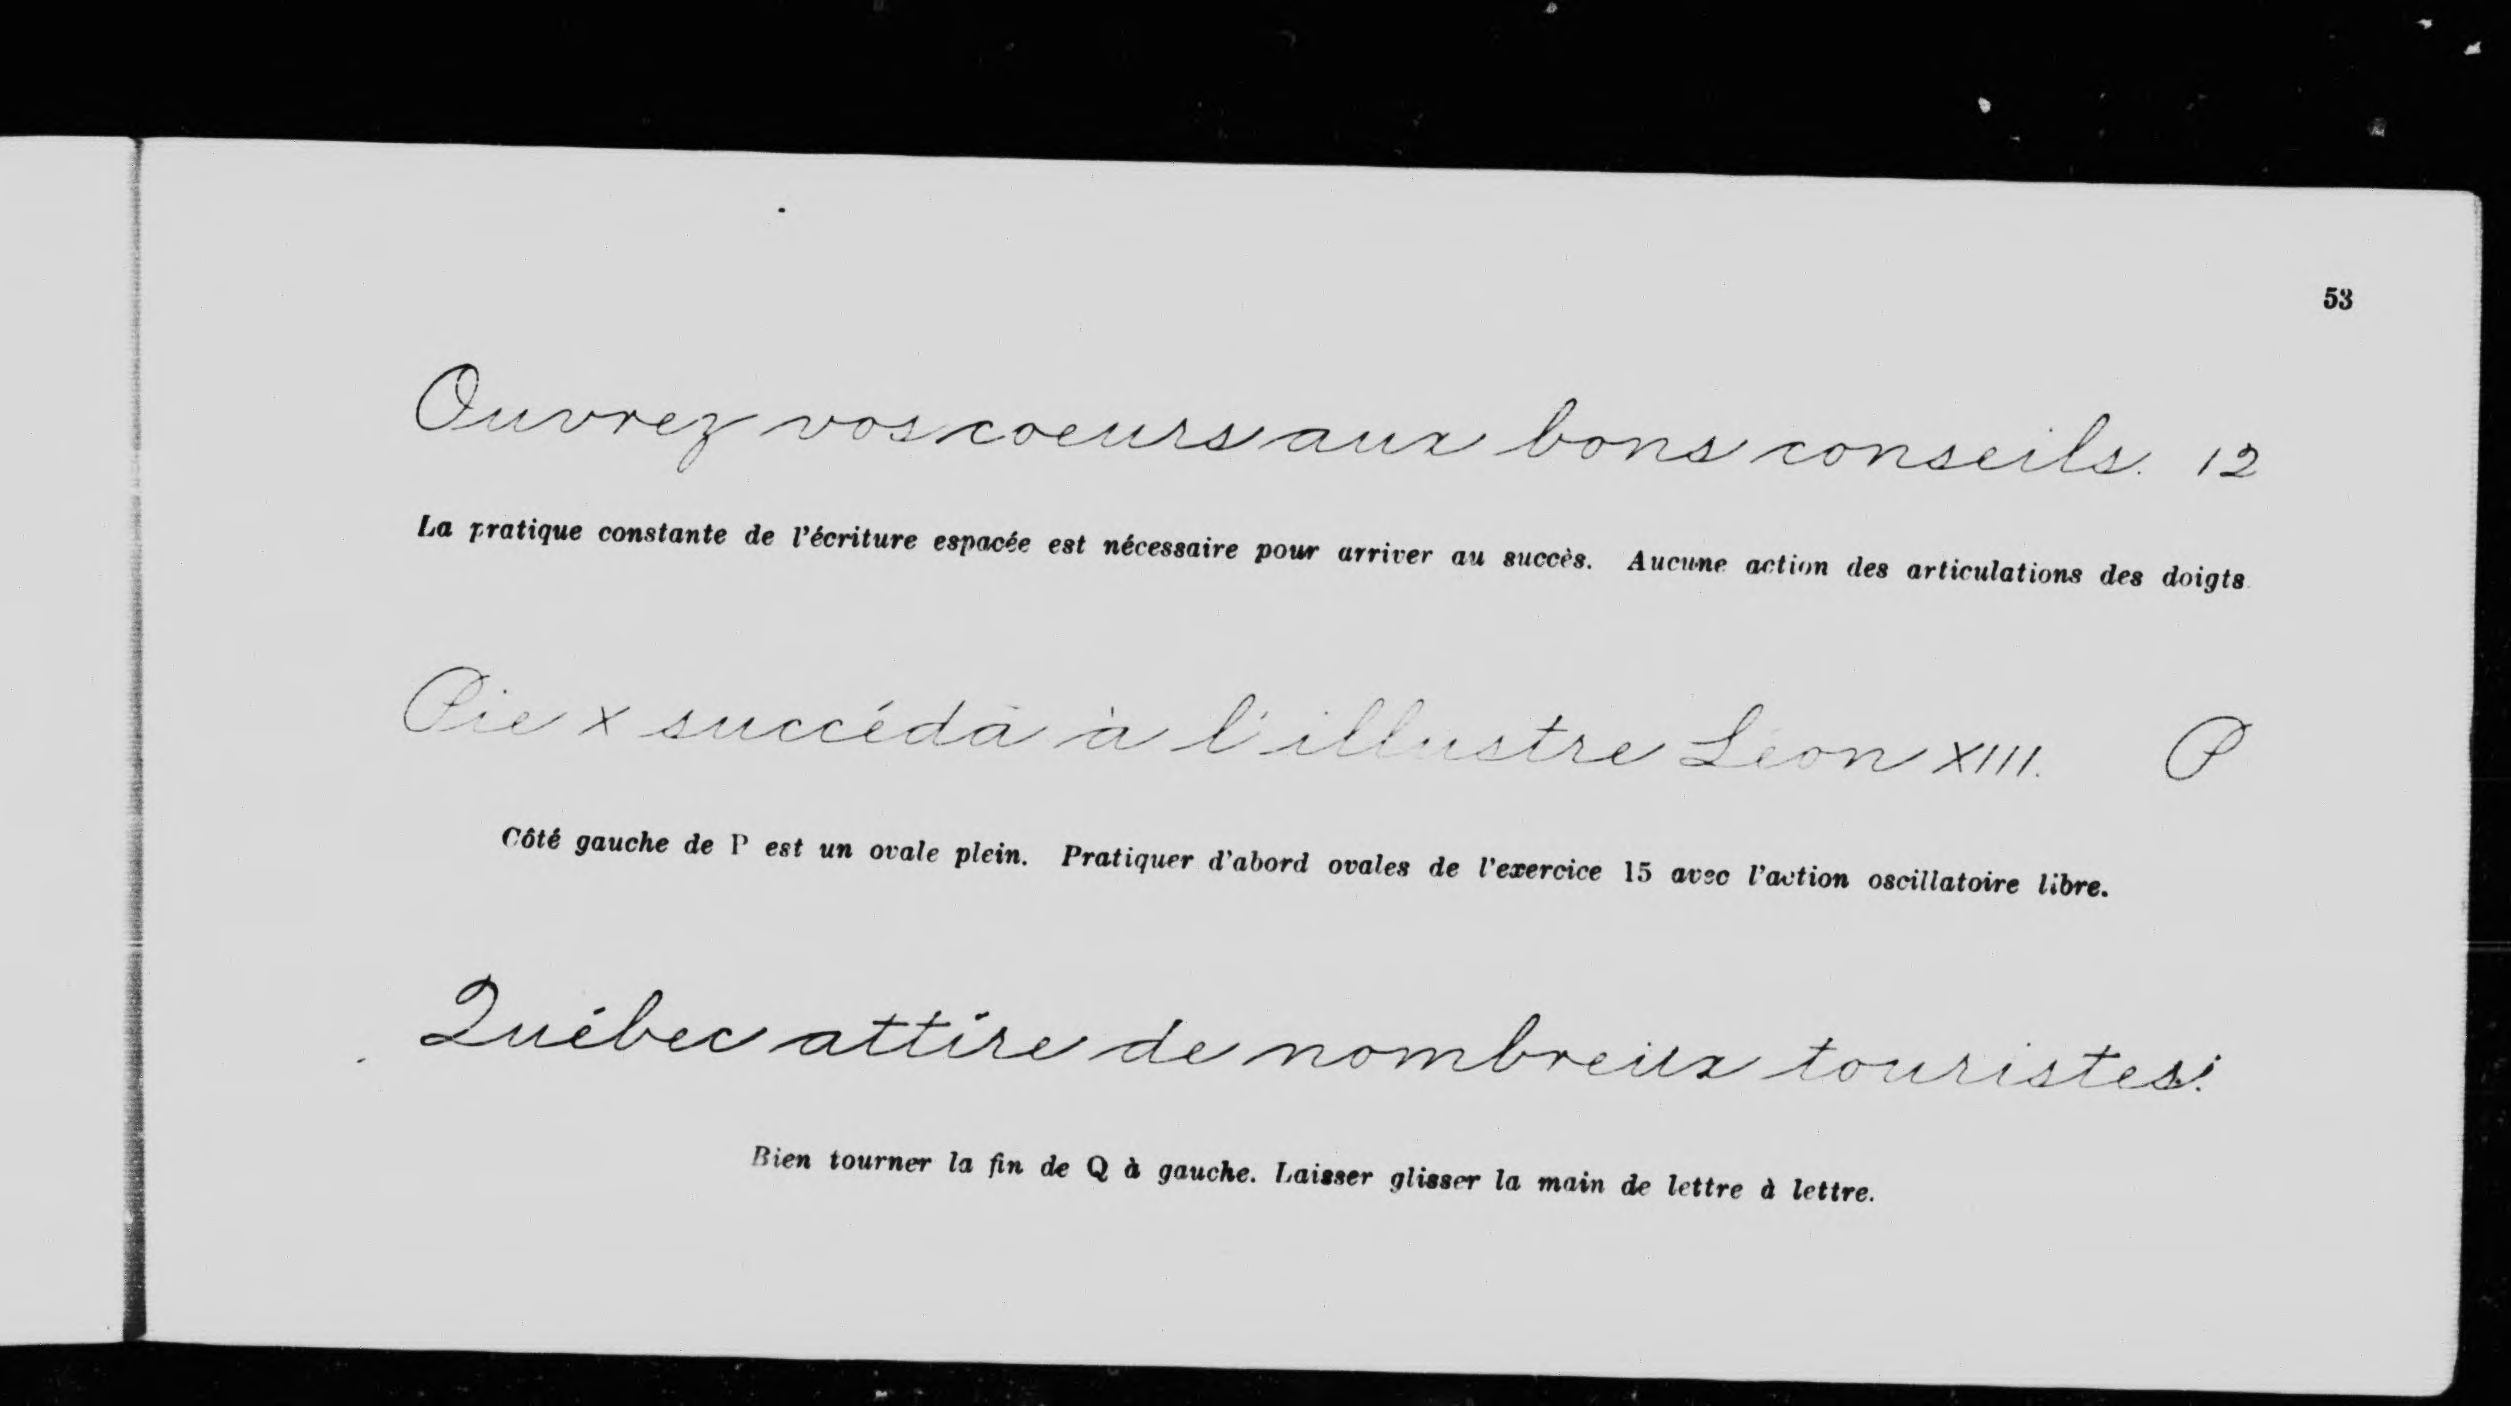 53
Ouvrez vos coeurs aux bons conseils. 12
La pratique constante de l'écriture espacée est nécessaire pour arriver au succès. Aucune action des articulations des doigts
Pie X succéda à l'illustre Léon XIII. P
Côté gauche de P est un ovale plein. Pratiquer d'abord ovales de l'exercice 15 avec l'action oscillatoire libre.
Québec attire de nombreux touristes.
Bien tourner la fin de Q à gauche. Laisser glisser la main de lettre à lettre.